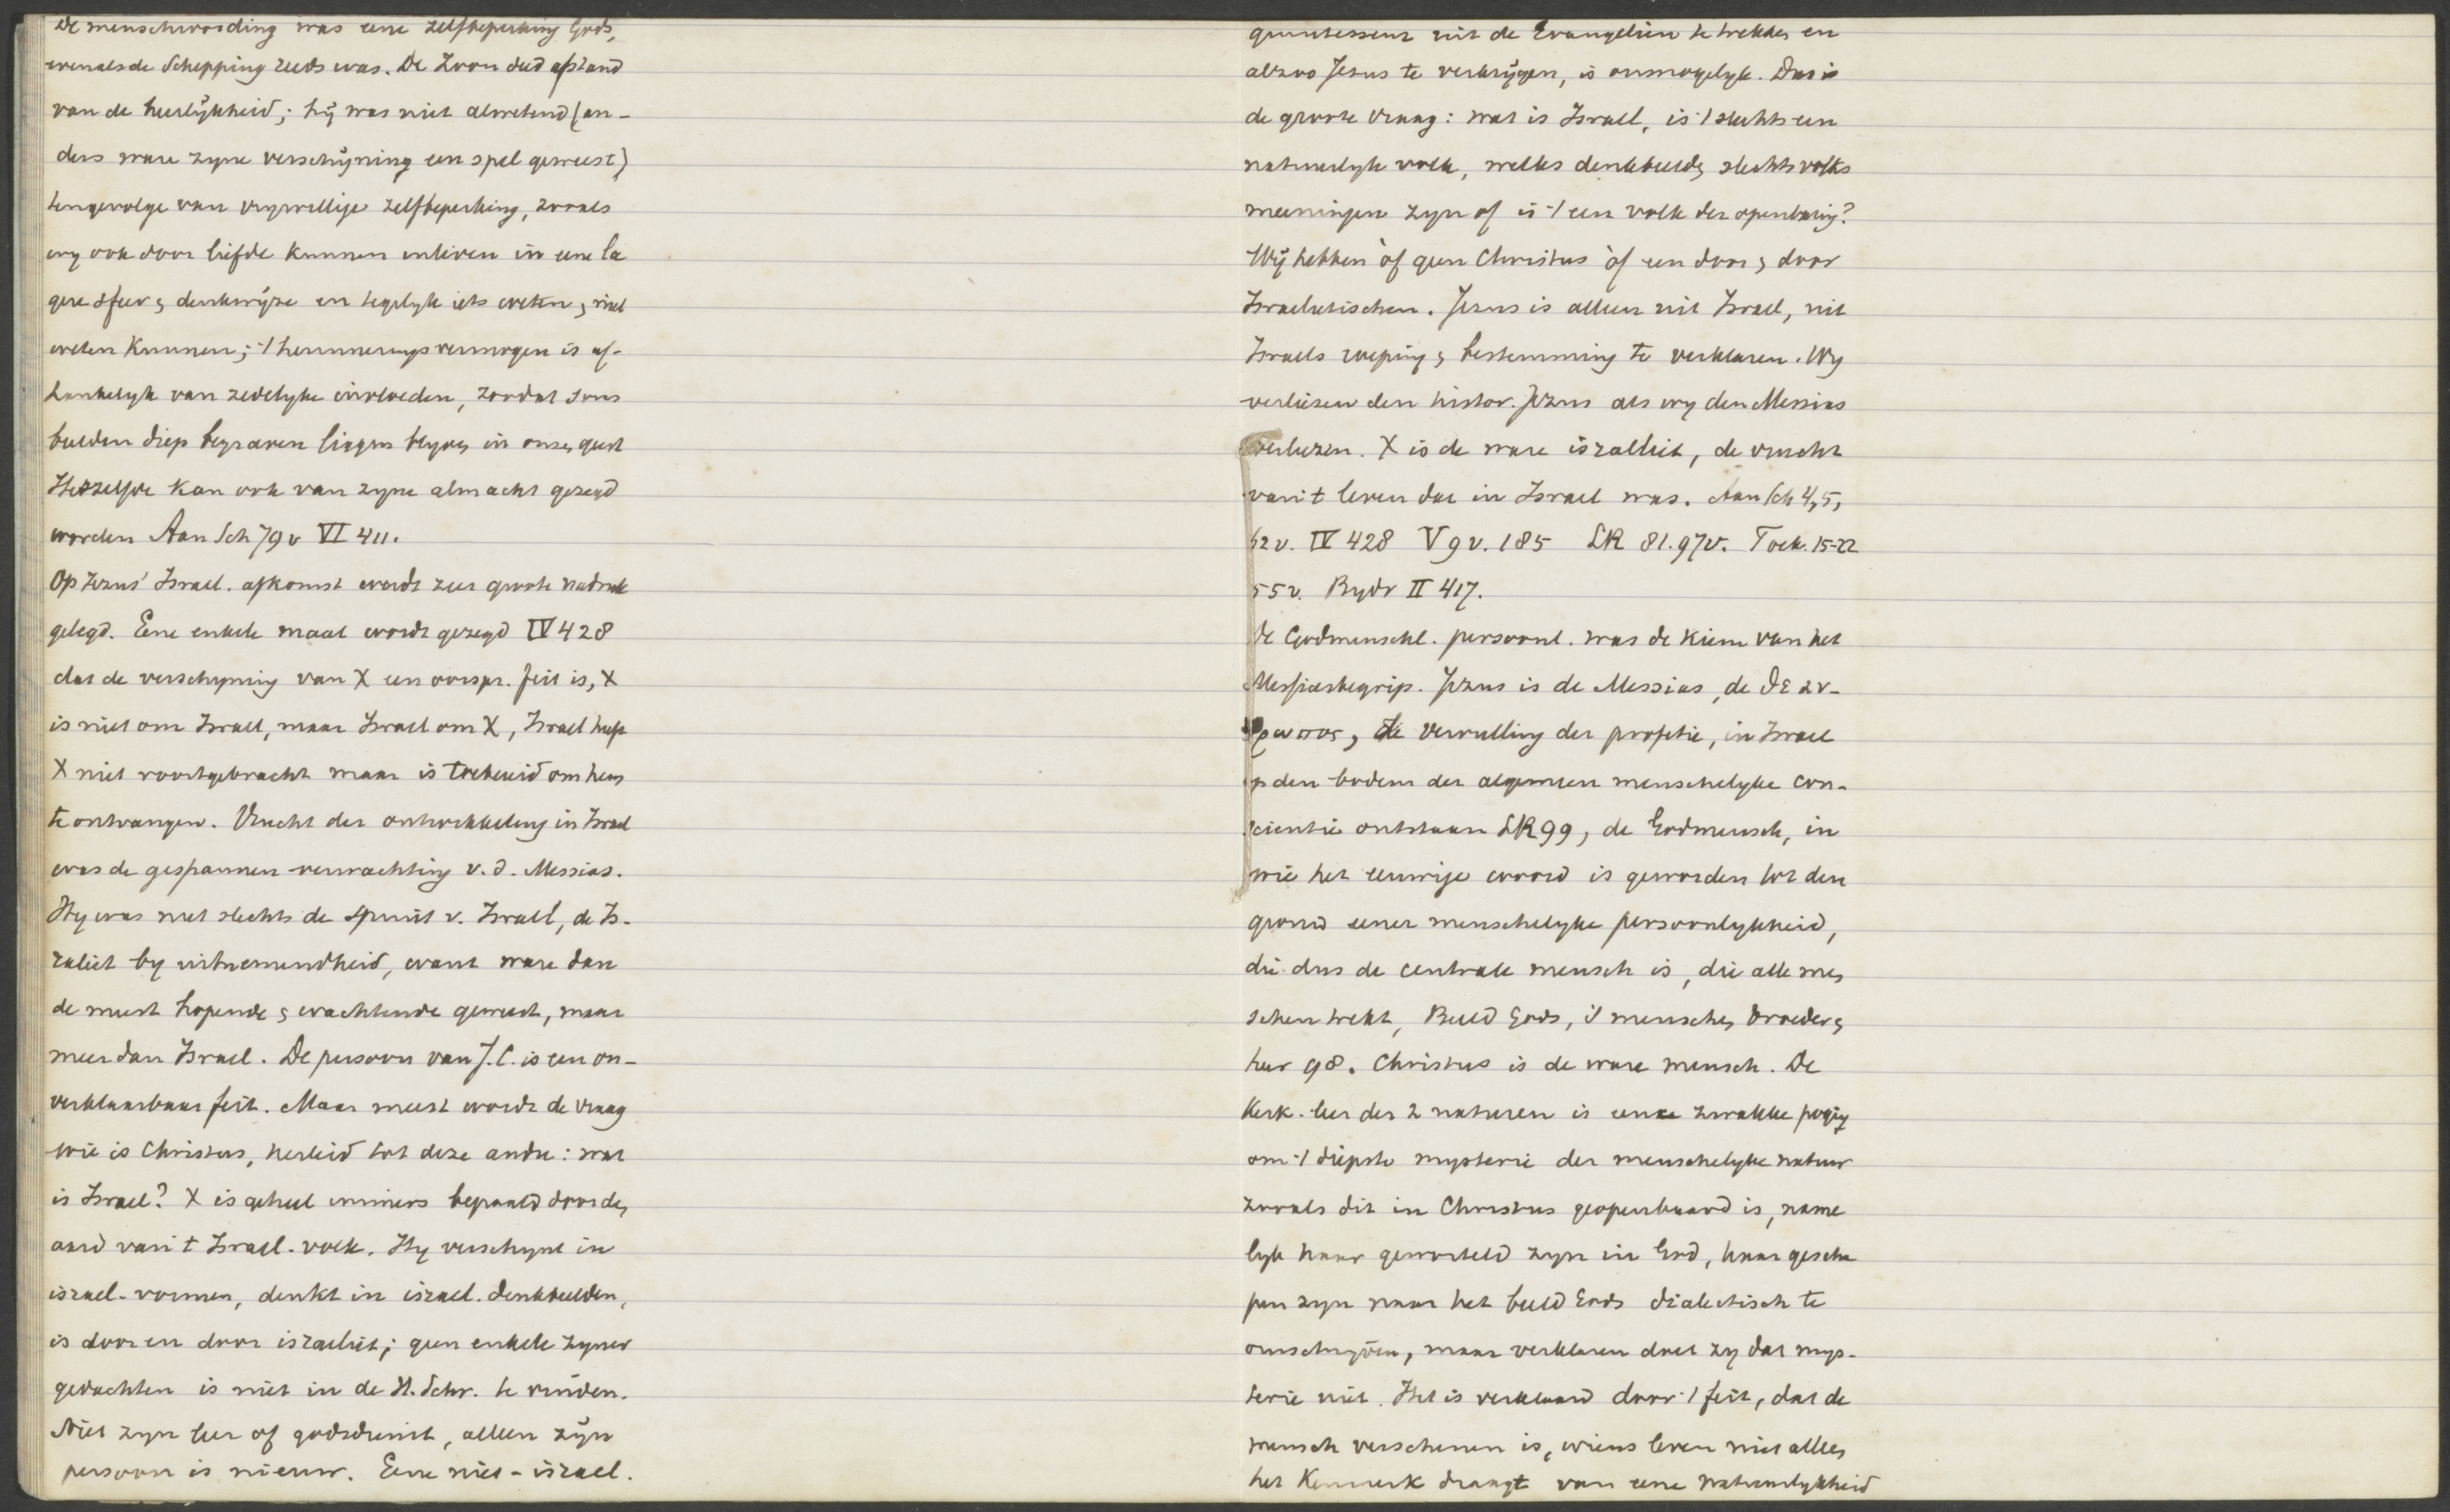 De menschwording was eene zelfbeperking Gods,
evenals de Schepping reeds was. De Zoon deed afstand
van de heerlijkheid; hij was niet alwetend (an-
ders ware zyne verschijning een spel geweest)
tengevolge van vrywillige zelfbeperking, zooals
wy ook door liefde kunnen inleven in eene la
gere sfeer & denkwijze en tegelyk iets weten & niet
weten kunnen; 't herinneringsvermogen is af-
hankelyk van zedelyke invloeden, zoodat soms
beelden diep begraven liggen blyven in onzen geest
Hetzelfde kan ook van zyne almacht gezegd
worden Aan Sch 79 v VI 411.
Op Jezus' Israel. afkomst wordt zeer groote nadruk
gelegd. Eene enkele maal wordt gezegd IV 428
dat de verschyning van X een oorspr. feit is, X
is niet om Israel, maar Israel om X, Israel heeft
X niet voortgebracht maar is toebereid om hem
te ontvangen. Vrucht der ontwikkeling in Israel
was de gespannen verwachting v. d. Messias.
Hy was niet slechts de spruit v. Israel, de Is-
raliet by uitnemendheid, want ware dan
de meest hopende & wachtende geweest, maar
meer dan Israel. De persoon van J.C. is een on-
verklaarbaar feit. Maar meest wordt de vraag
wie is Christus, herleid tot deze andre: wat
is Israel? X is geheel immers bepaald door den
aard van 't Israel. volk. Hy verschynt in
israel. vormen, denkt in israel. denkbeelden,
is door en door israeliet; geen enkele zyner
gedachten is niet in de H. Schr. te vinden.
Niet zyn leer of godsdienst, alleen zijn
persoon is nieuw. Eene niet-israel.
quintessens uit de Evangelien te trekken en
alzoo Jezus te verkrijgen, is onmogelyk. Dus is
de groote vraag: wat is Israel, is 't slechts een
natuurlyk volk, welks denkbeelden slechts volks
meeningen zyn of is 't een volk der openbaring?
Wij hebben òf geen Christus òf een door & door
Israelietischen. Jezus is alleen uit Israel, uit
Israels roeping & bestemming te verklaren. Wy
verliezen den histor. Jezus als wy den Messias
verliezen. X is de ware israeliet, de vrucht
van 't leven dat in Israel was. Aan Sch 4, 5,
62 v. IV 428 V 9 v. 185 LR 81. 97 v. Toek. 15-22
55 v. Bydr II 417.
De Godmenschl. persoonl. was de kiem van het
Messiasbegrip. Jezus is de Messias, de δε αν-
θρωπος, de vervulling der profetie, in Israel
op den bodem der algemeen menschelyke con-
scientie ontstaan LR 99, de Godmensch, in
wie het eeuwige woord is geworden tot den
grond eener menschelyke persoonlykheid,
die dus de centrale mensch is, die alle men
schen trekt, Beeld Gods, 's menschen broeder &
heer 98. Christus is de ware mensch. De
Kerk. leer der 2 naturen is eene zwakke poging
om 't diepste mysterie der menschelyke natuur
zooals dit in Christus geopenbaard is, name
lyk haar geworteld zyn in God, haar gescha
pen zyn naar het beeld Gods dialectisch te
omschryven, maar verklaren doet zy dat mys-
terie niet. Het is verklaard door 't feit, dat de
mensch verschenen is, wiens leven niet alleen
het Kenmerk draagt van eene natuurlykheid